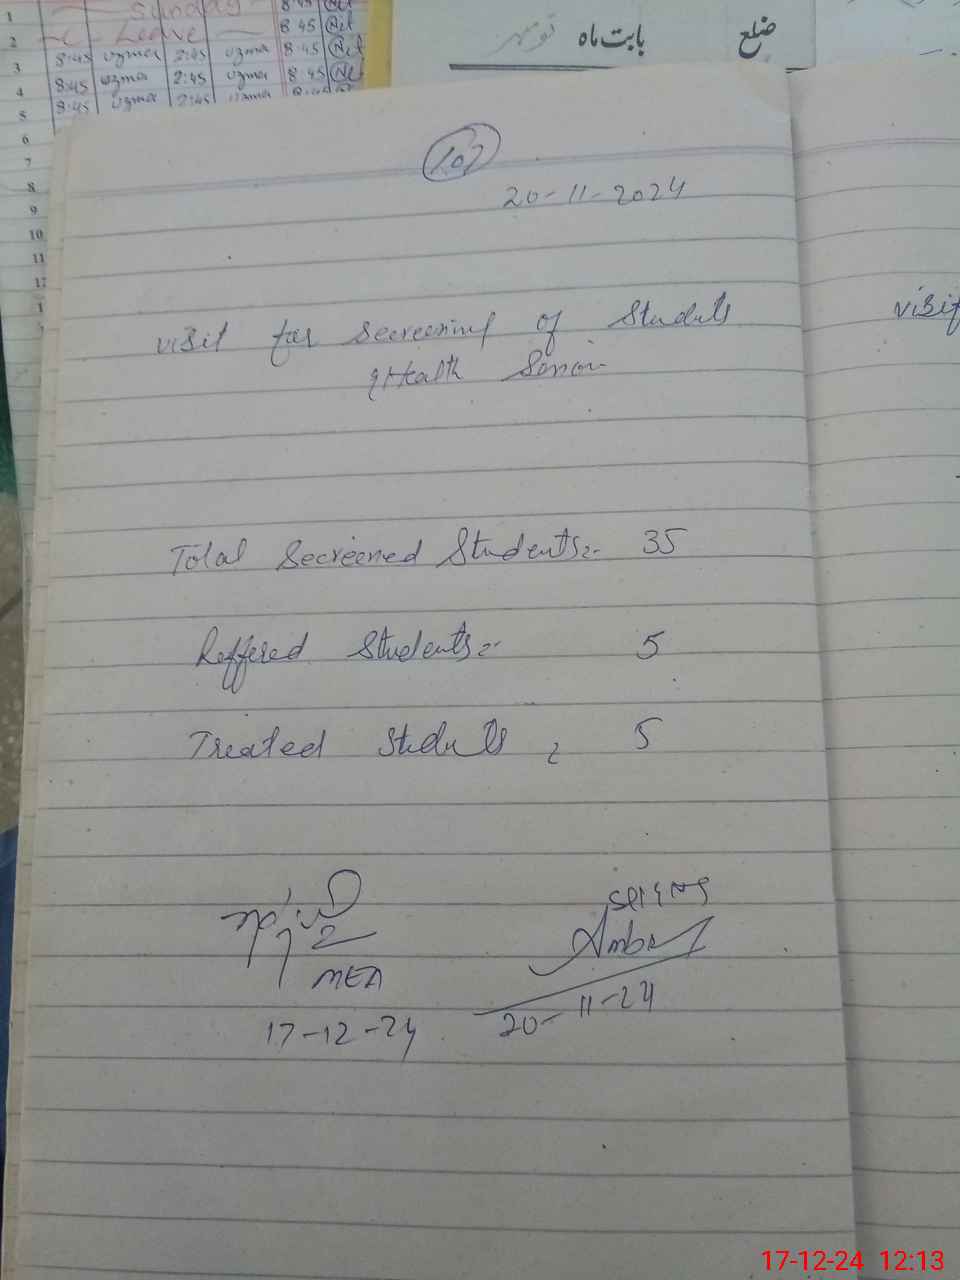 1 Sunday 8 45
2 Leave 8 45
3 8:45 uzma 2:45 uzma 8 45
4 8:45 uzma 2:45 uzma 8 45
5 8:45 uzma 2:45 uzma
6
7
8
9
10
11
ضلع بابت ماہ نومبر
107
20-11-2024
visit for Secreening of Students
& Health Session
visit
Total Secreened Students:- 35
Reffered Students:- 5
Treated Students 5
MEA
17-12-24
Amber
20-11-24
17-12-24 12:13